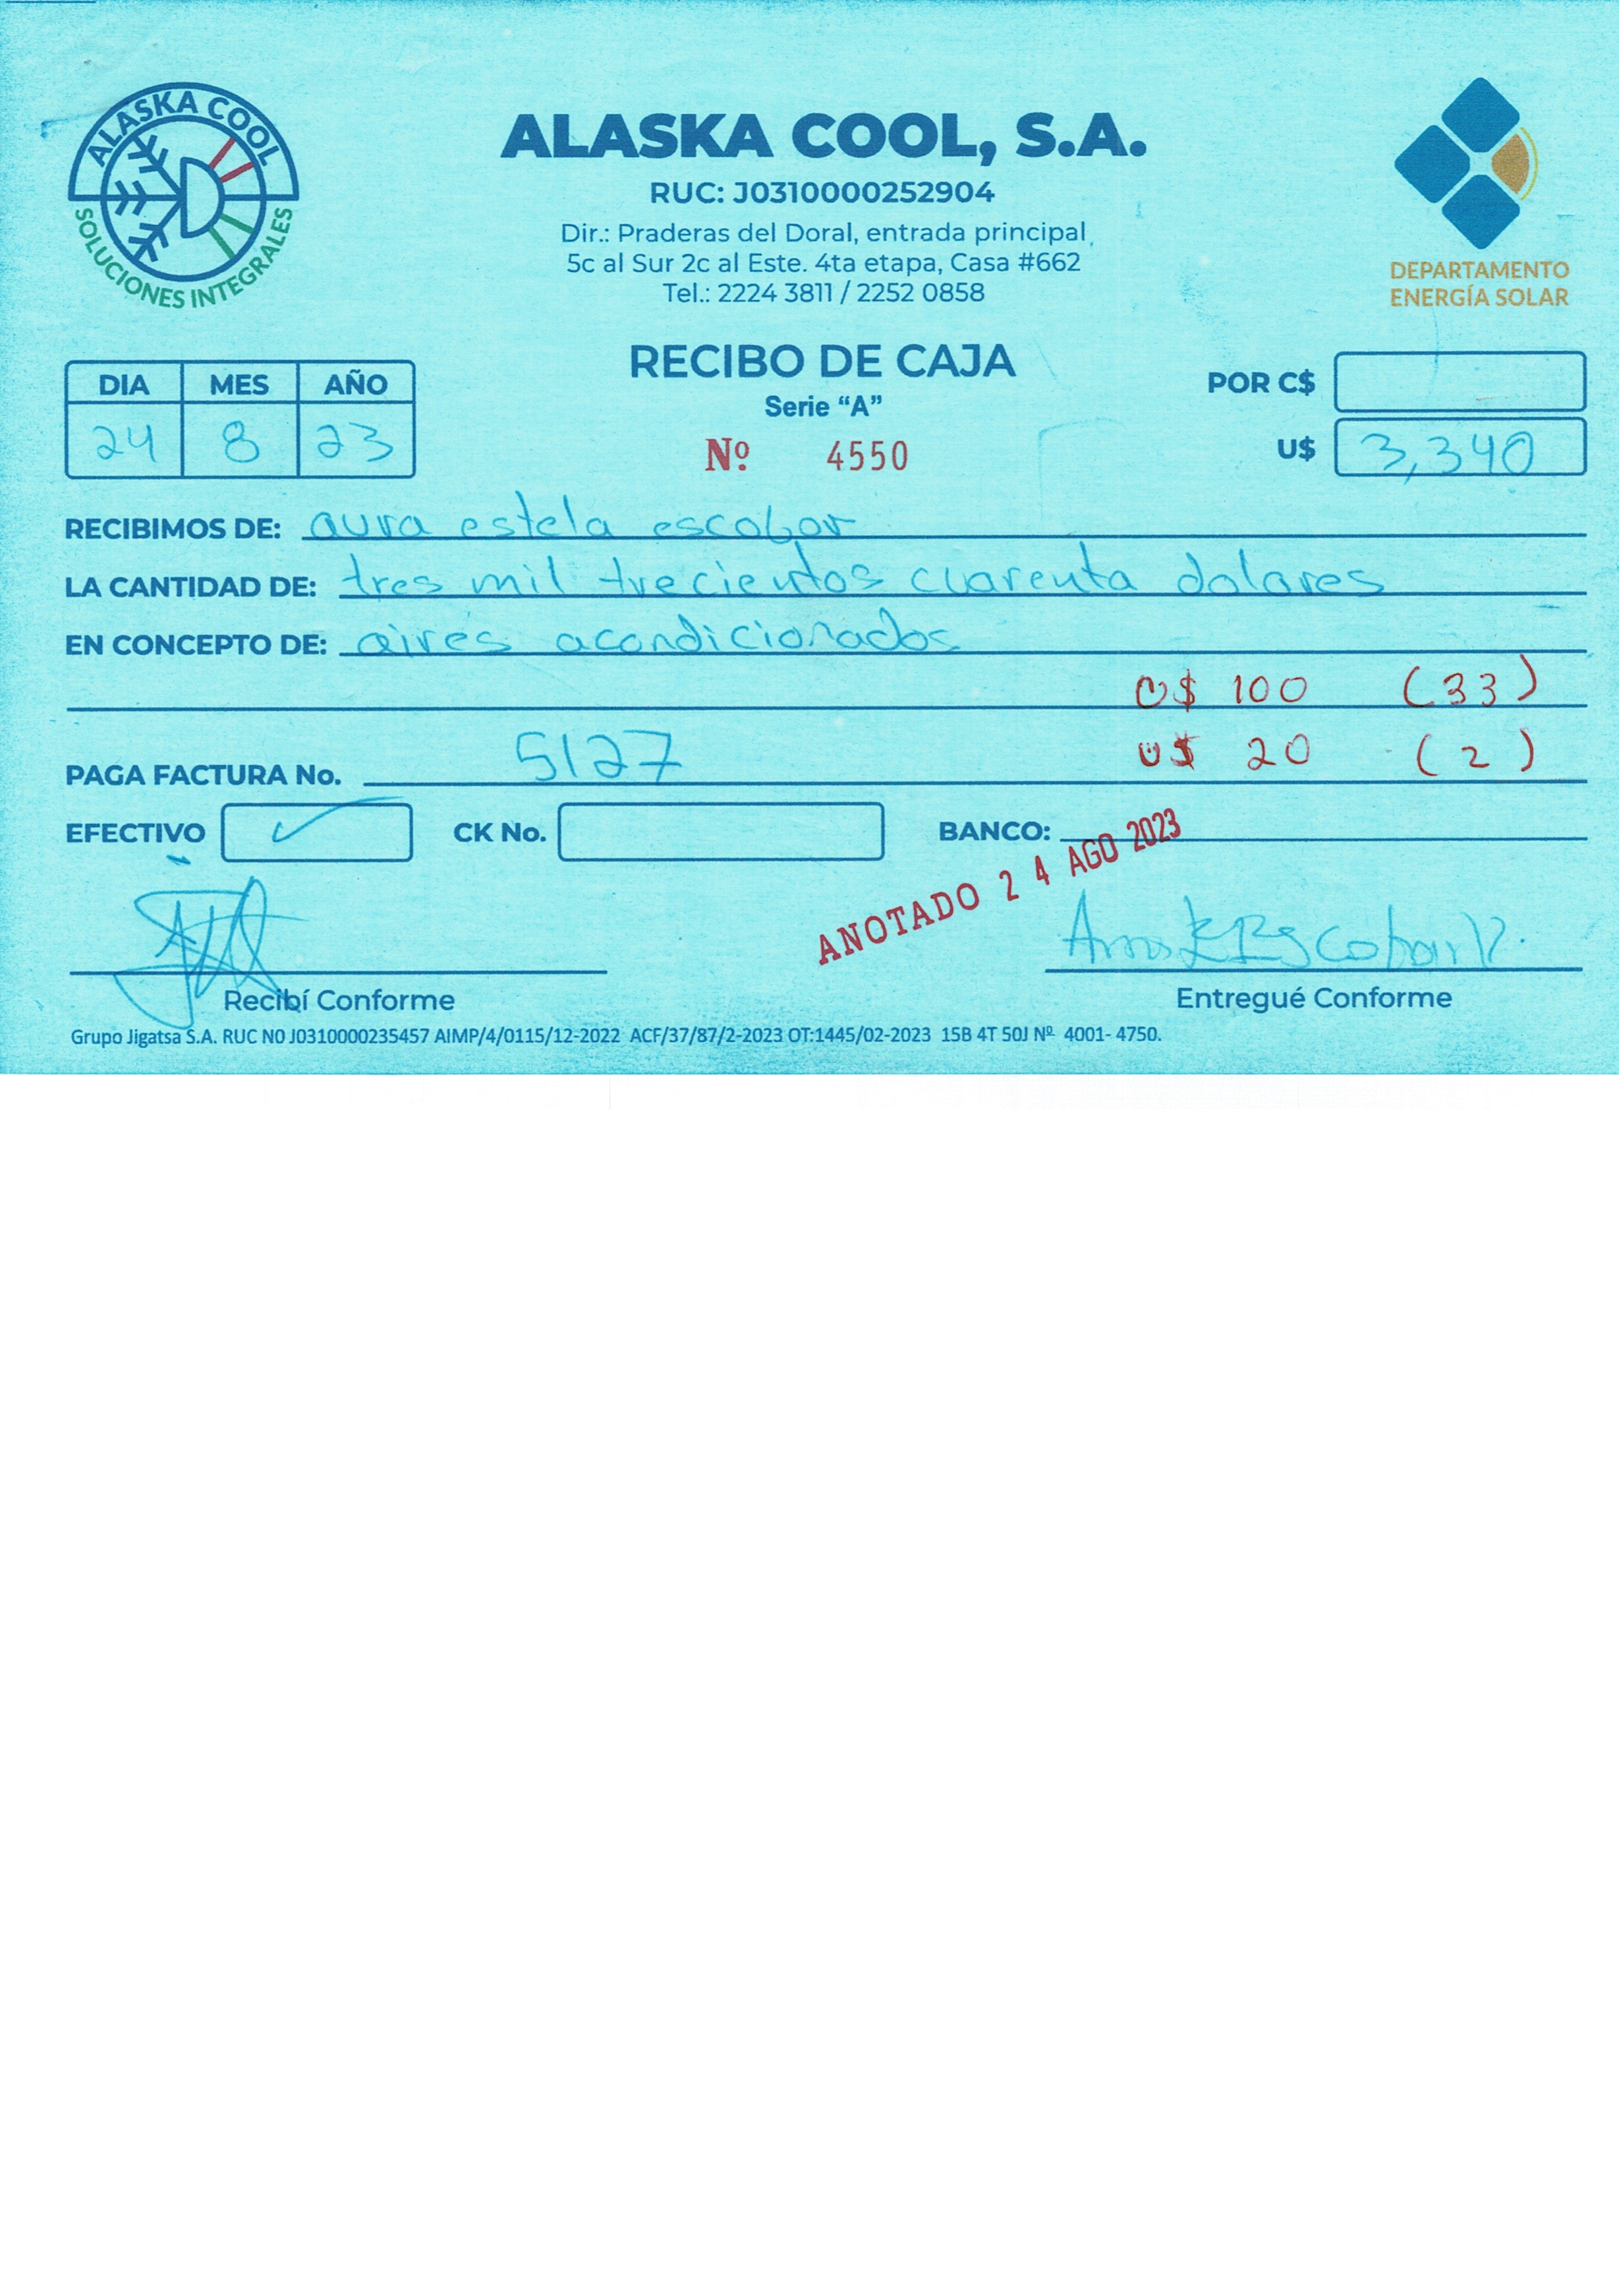 ALASKA COOL
SOLUCIONES INTEGRALES
ALASKA COOL, S.A.
RUC: J0310000252904
Dir.: Praderas del Doral, entrada principal,
5c al Sur 2c al Este. 4ta etapa, Casa #662
Tel.: 2224 3811 / 2252 0858
DEPARTAMENTO
ENERGÍA SOLAR
RECIBO DE CAJA
Serie “A”
Nº 4550
DIA MES AÑO
24 8 23
POR C$
U$ 3,340
RECIBIMOS DE: aura estela escobar
LA CANTIDAD DE: tres mil trecientos cuarenta dolares
EN CONCEPTO DE: aires acondicionados
U$ 100 (33)
U$ 20 (2)
PAGA FACTURA No. 5127
EFECTIVO ✓ CK No. BANCO:
ANOTADO 24 AGO 2023
Recibí Conforme
Entregué Conforme
Grupo Jigatsa S.A. RUC N0 J0310000235457 AIMP/4/0115/12-2022 ACF/37/87/2-2023 OT:1445/02-2023 15B 4T 50J Nº 4001- 4750.